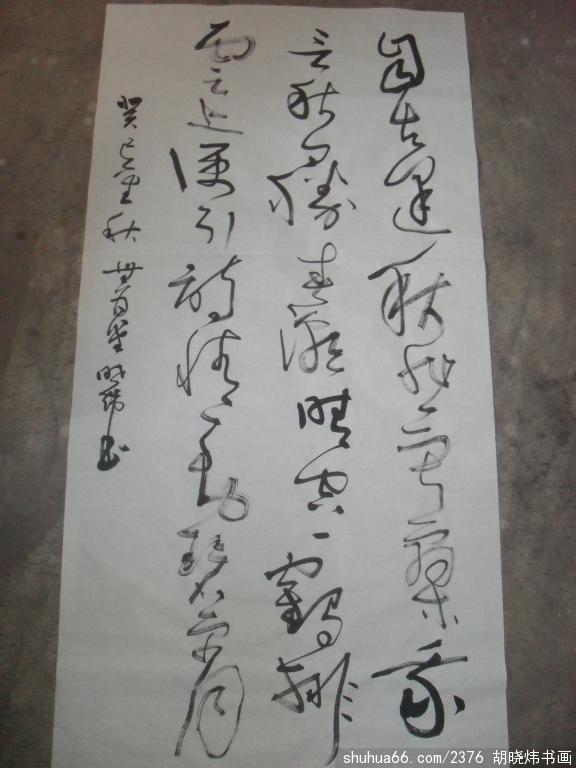 自古逢秋悲寂寥我
言秋日勝春潮晴空一鶴排
云上便引詩情到碧霄
癸巳金秋 百堂 晓炜书
shuhua66.com/2376 胡晓炜书画